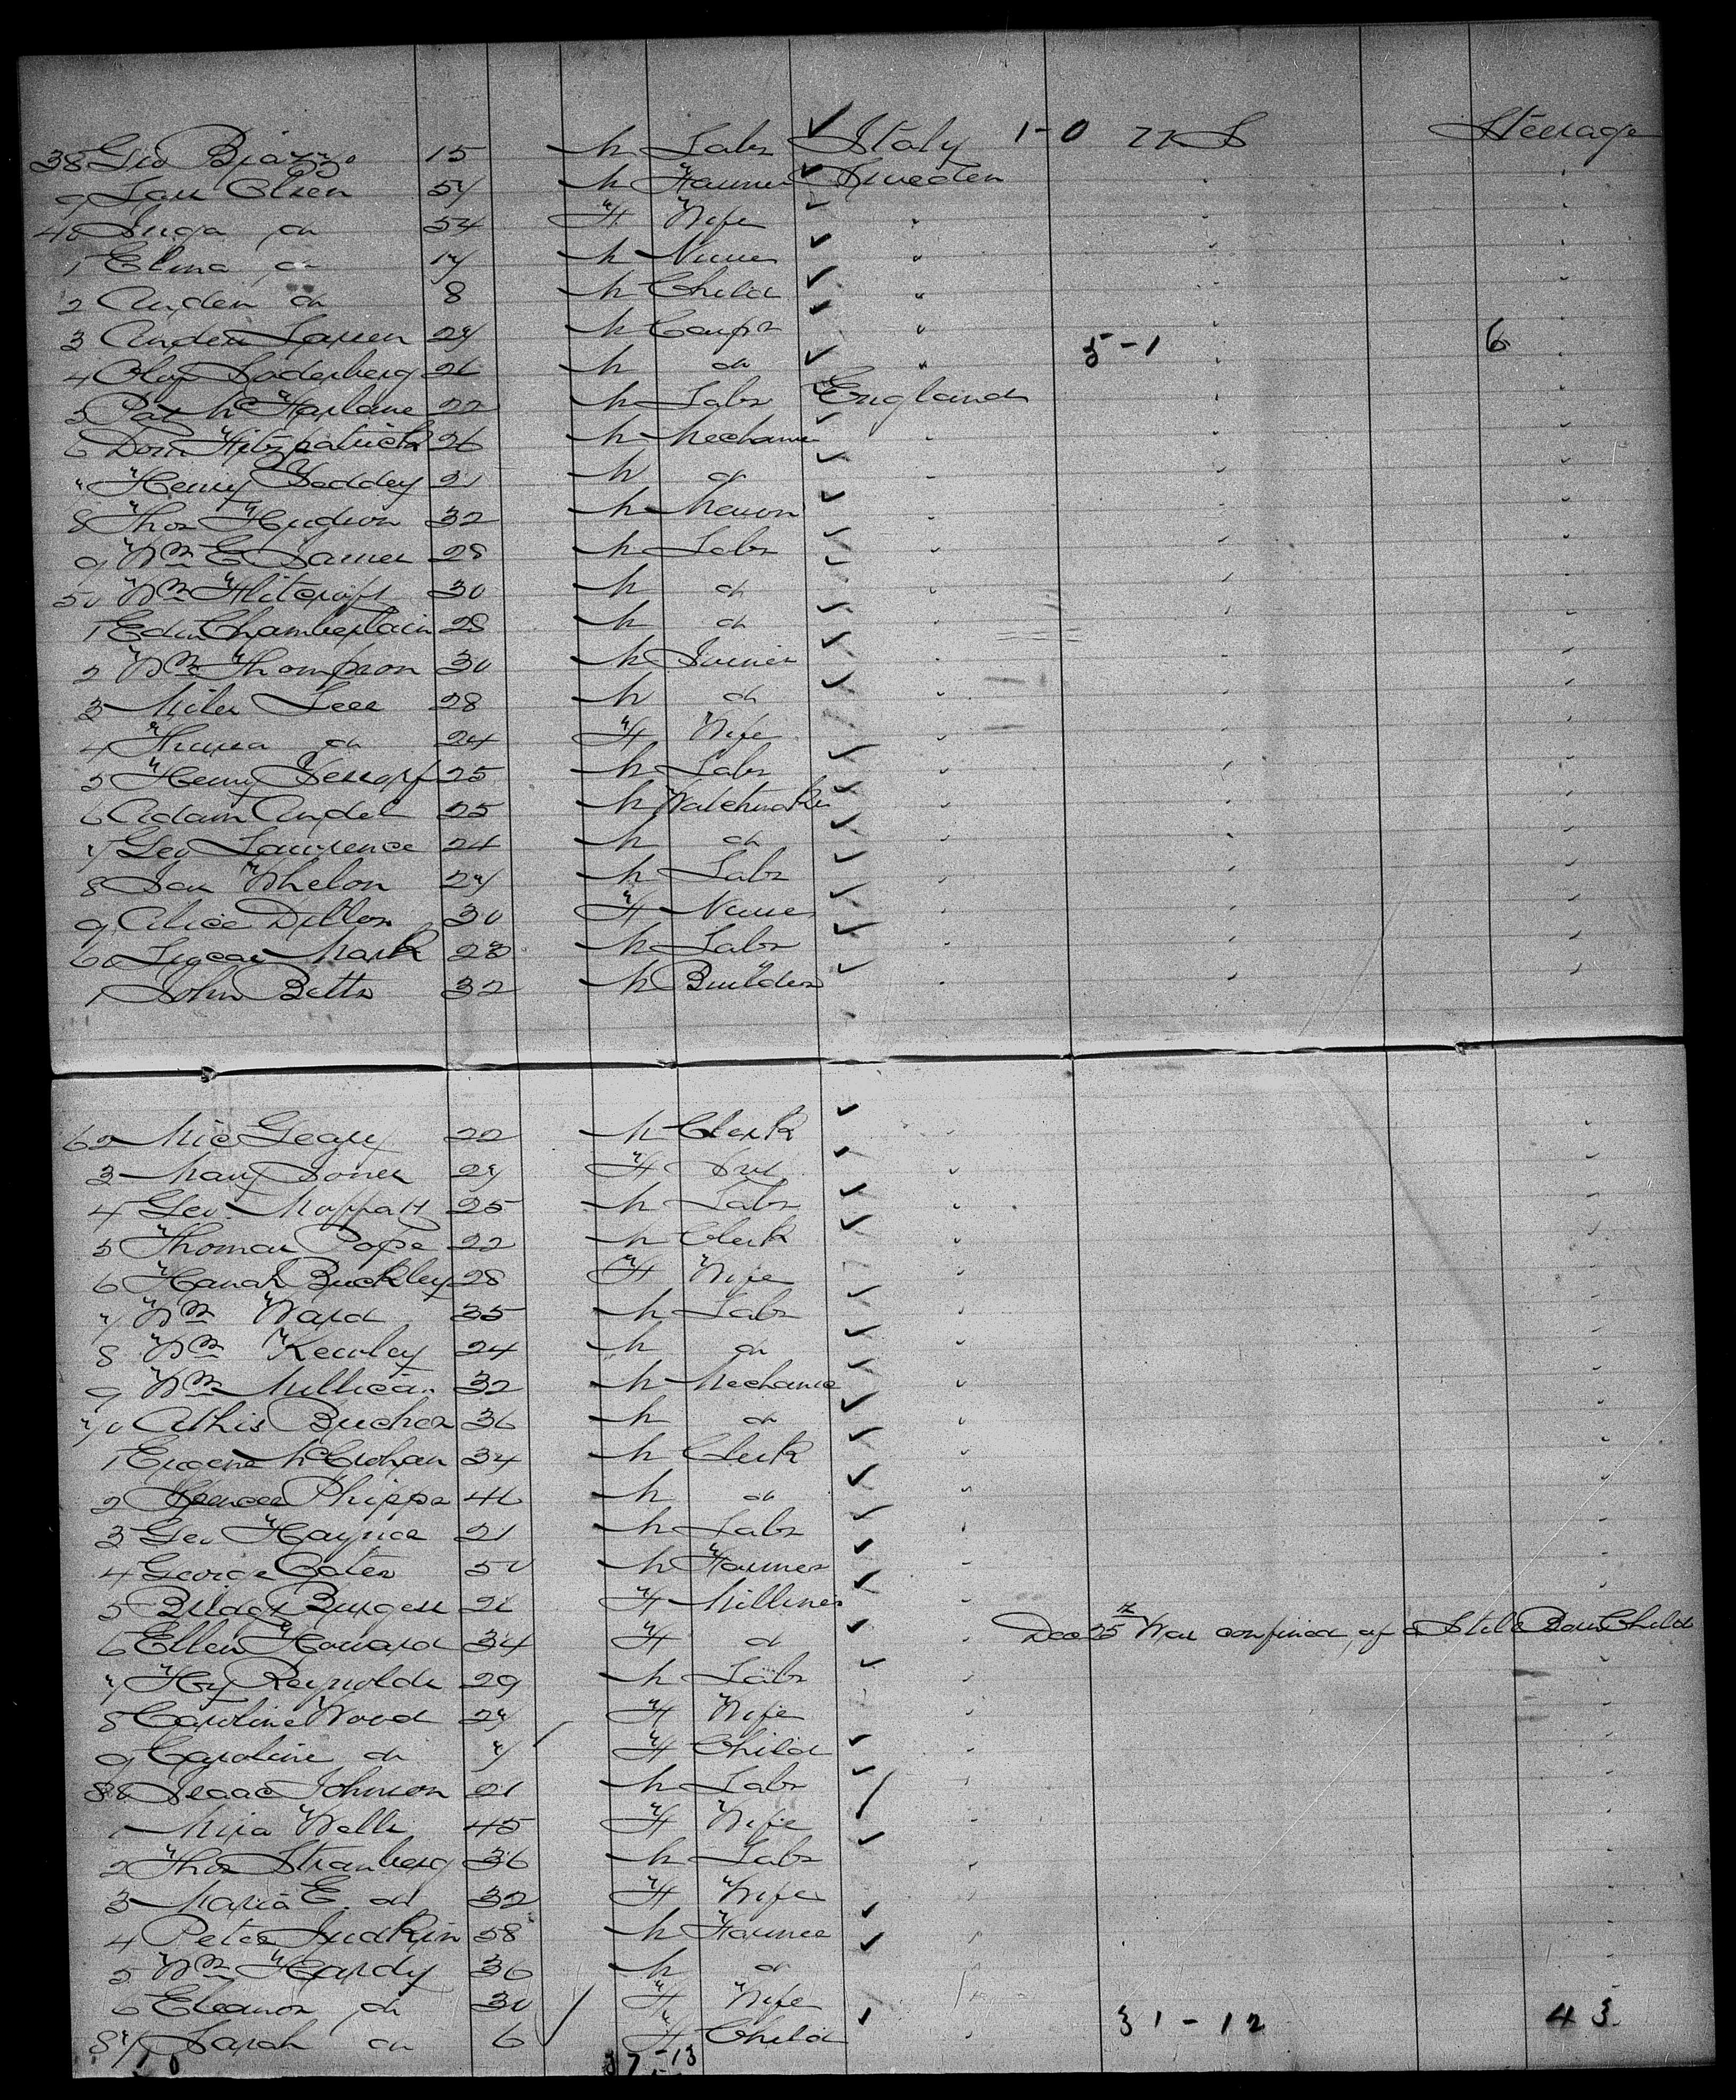 38 Gio 15 M Labr Italy 1-0 U S Steerage
9 Lars Olsen 54 M Farmer Sweden "
40 Inga do 54 F Wife " " "
1 Elma do 17 M " " "
2 Anders do 8 M Child " " "
3 Anders Larsen 27 M Carpr " 5-1 " 6
4 Olof Soderberg 26 M do " " "
5 Pat McFarlane 22 M Labr England " "
6 Dom Fitzpatrick 26 M Mechanic " " "
" Henry 21 M do " " "
8 Thos Hudson 32 M Mason " " "
9 Wm E James 28 M Labr " " "
50 Wm Flitcroft 30 M do " " "
1 Edw Chamberlain 28 M do " " "
2 Wm Thompson 30 M Joiner " " "
3 Miles Lees 28 M do " " "
4 do 24 F Wife " " "
5 Henry 25 M Labr " " "
6 Adam 25 M Watchmaker " " "
7 Geo Lawrence 24 M do " " "
8 Jas Whelon 27 M Labr " " "
9 Alice Dillon 30 F " " "
60 Mark 28 M Labr " " "
1 John Betts 32 M Builder " " "
62 Mic Geary 22 M Clerk " "
3 Mary Jones 27 F " "
4 Geo Moffatt 25 M Labr " "
5 Thomas Pope 22 M Clerk " "
6 Hanah Buckley 28 F Wife " "
7 Wm Ward 35 M Labr " "
8 Wm Kewley 24 M do " "
9 Wm Millican 32 M Mechanic " "
70 Bucher 36 M do " "
1 Eugene McCrohan 34 M Clerk " "
2 Phipps 46 M do " "
3 Geo Haynes 21 M Labr " "
4 George Oates 50 M Farmer " "
5 Bridgt Burgess 26 F Milliner " "
6 Ellen Howard 34 F do " Dec 25th Was confined of a Still Born Child
7 Hy Reynolds 29 M Labr " "
8 Caroline Wood 27 F Wife " "
9 Caroline do 7 F Child " "
80 Isaac Johnson 21 M Labr " "
1 Mira Wells 45 F Wife " "
2 Thos Stranberg 36 M Labr " "
3 Maria E do 32 F Wife " "
4 Peter Judkin 58 M Farmer " "
5 Wm Hardy 36 M do " "
6 Eleanor do 30 F Wife "
87 Sarah do 6 F Child " 31-12 43
37-13